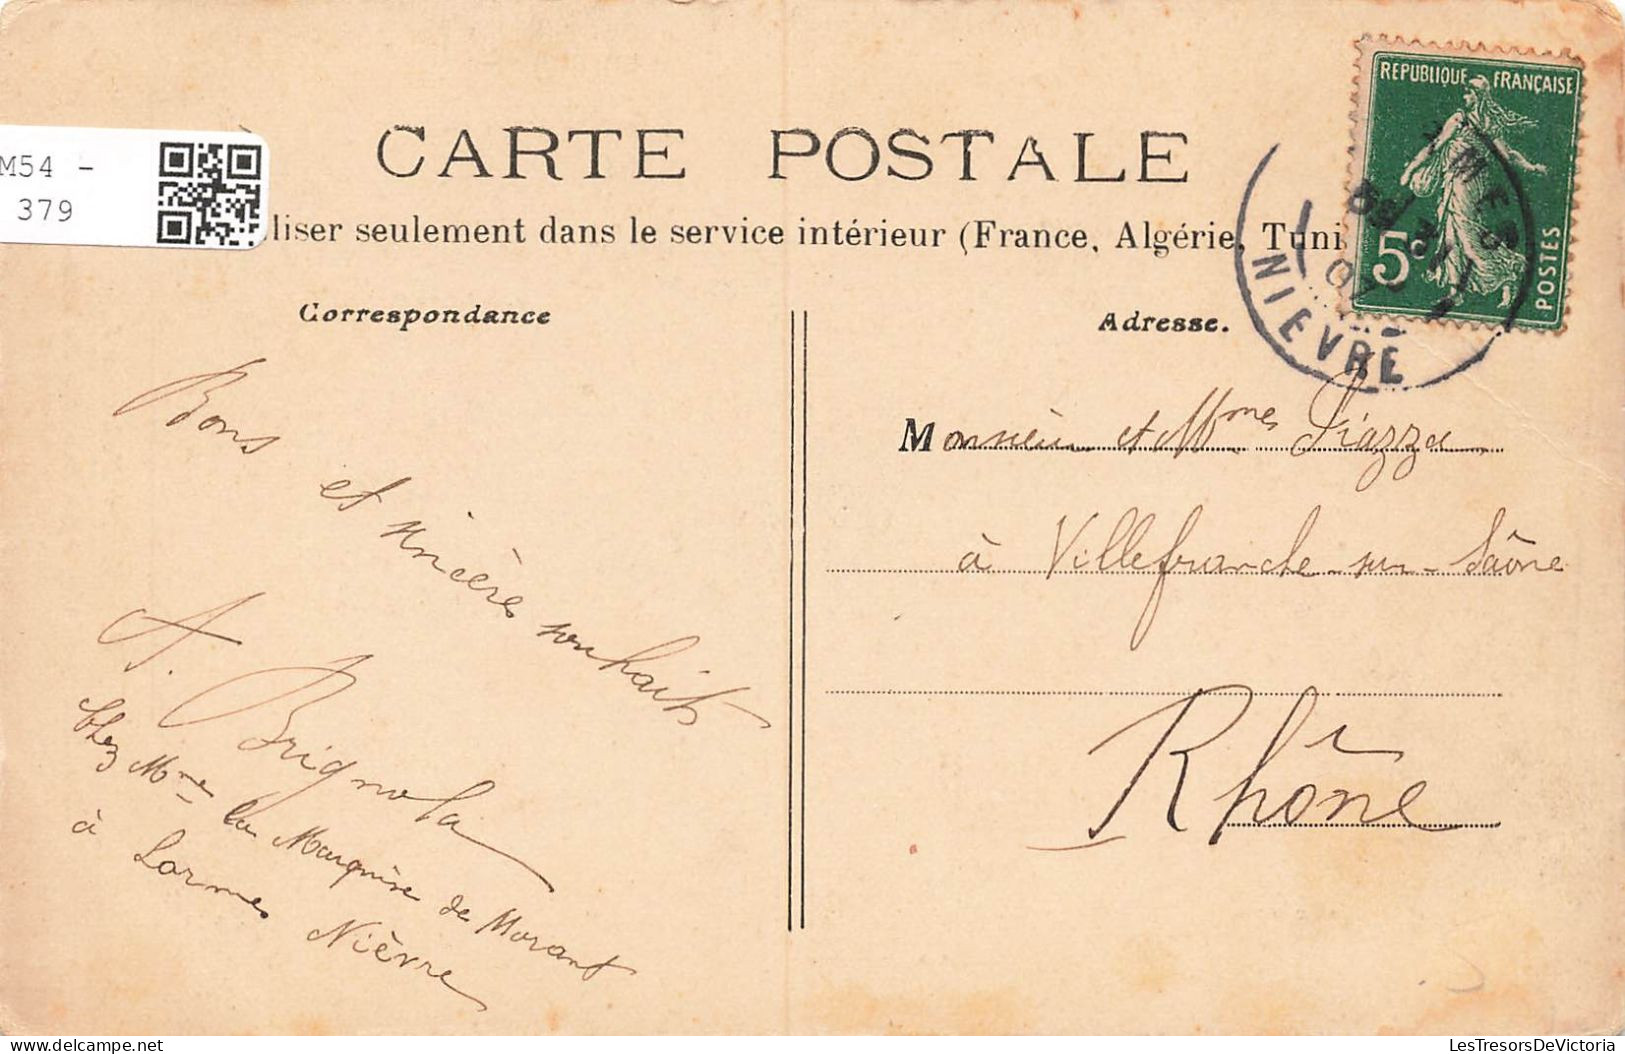 M54 -
379
CARTE POSTALE
liser seulement dans le service intérieur (France, Algérie, Tuni
REPUBLIQUE FRANÇAISE
5c
POSTES
NIEVRE
Correspondance
Adresse.
Bons
et sincères souhaits
A. Brignola
Chez Mme la Marquise de Morant
à Lormes Nièvre
Monsieur et Mmes Piazza
à Villefranche-sur-Saône
Rhône
LesTresorsDeVictoria